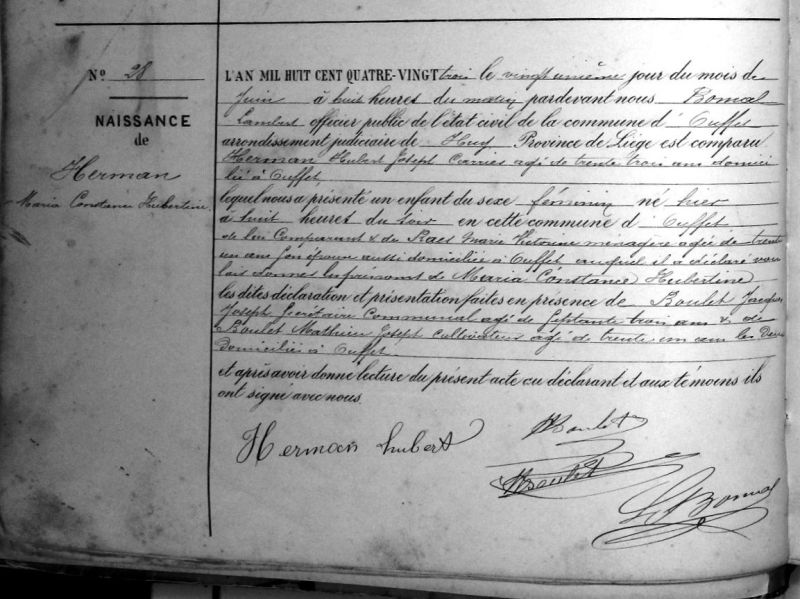 N° 28
NAISSANCE
de
Herman
Maria Constance Hubertine
L'AN MIL HUIT CENT QUATRE-VINGT trois le vingt unième jour du mois de
Juin à huit heures du matin pardevant nous Bomal
Lambert officier public de l'état civil de la commune d' Ouffet
arrondissement judiciaire de Huy Province de Liège est comparu
Herman Hubert Joseph Carrier agé de trente trois ans domici
lié à Ouffet,
lequel nous a présenté un enfant du sexe féminin né hier
à huit heures du soir en cette commune d' Ouffet
de lui Comparant & de Raes Marie Victorine menagère agée de trente
un ans son épouse aussi domiciliée à Ouffet auquel il a déclaré vou
loir donner les prénoms de Maria Constance Hubertine
les dites déclaration et présentation faites en présence de Boulet Jacques
Joseph Secrétaire Communal agé de septante trois ans & de
Boulet Mathieu Joseph cultivateur agé de trente un ans les Deux
domiciliés à Ouffet
et après avoir donné lecture du présent acte au déclarant et aux témoins ils
ont signé avec nous.
Herman hubert
Boulet
Boulet
Bomal